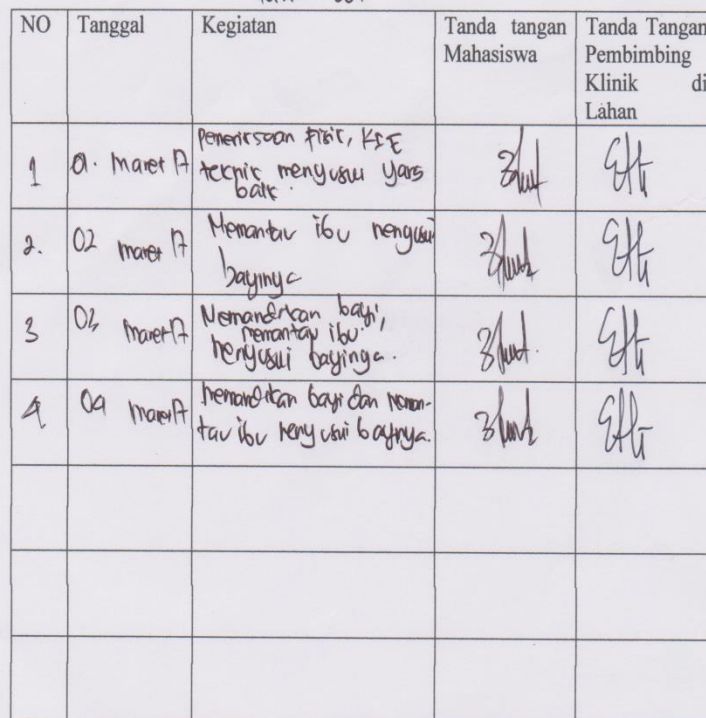 NO Tanggal Kegiatan Tanda tangan Tanda Tangan
Mahasiswa Pembimbing
Klinik di
Lahan
Pemeriksaan Fisik, KIE
1 01 Maret 17 teknik menyusui yang
baik.
2. 02 Maret 17 Memantau ibu menyusui
bayinya
3 03 Maret 17 Memandikan bayi,
memantau ibu
menyusui bayinya.
4 04 Maret 17 Memandikan bayi dan meman-
tau ibu menyusui bayinya.